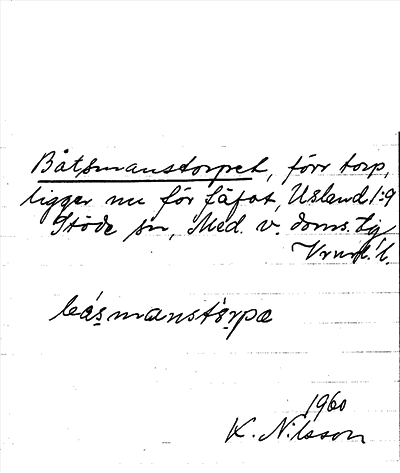 Båtsmanstorpet, förr torp,
ligger nu för fäfot, Usland 1:9
Stöde sn, Med. v. doms. tg
Vrml. l.
båsmanstórpa
1960
K. Nilsson